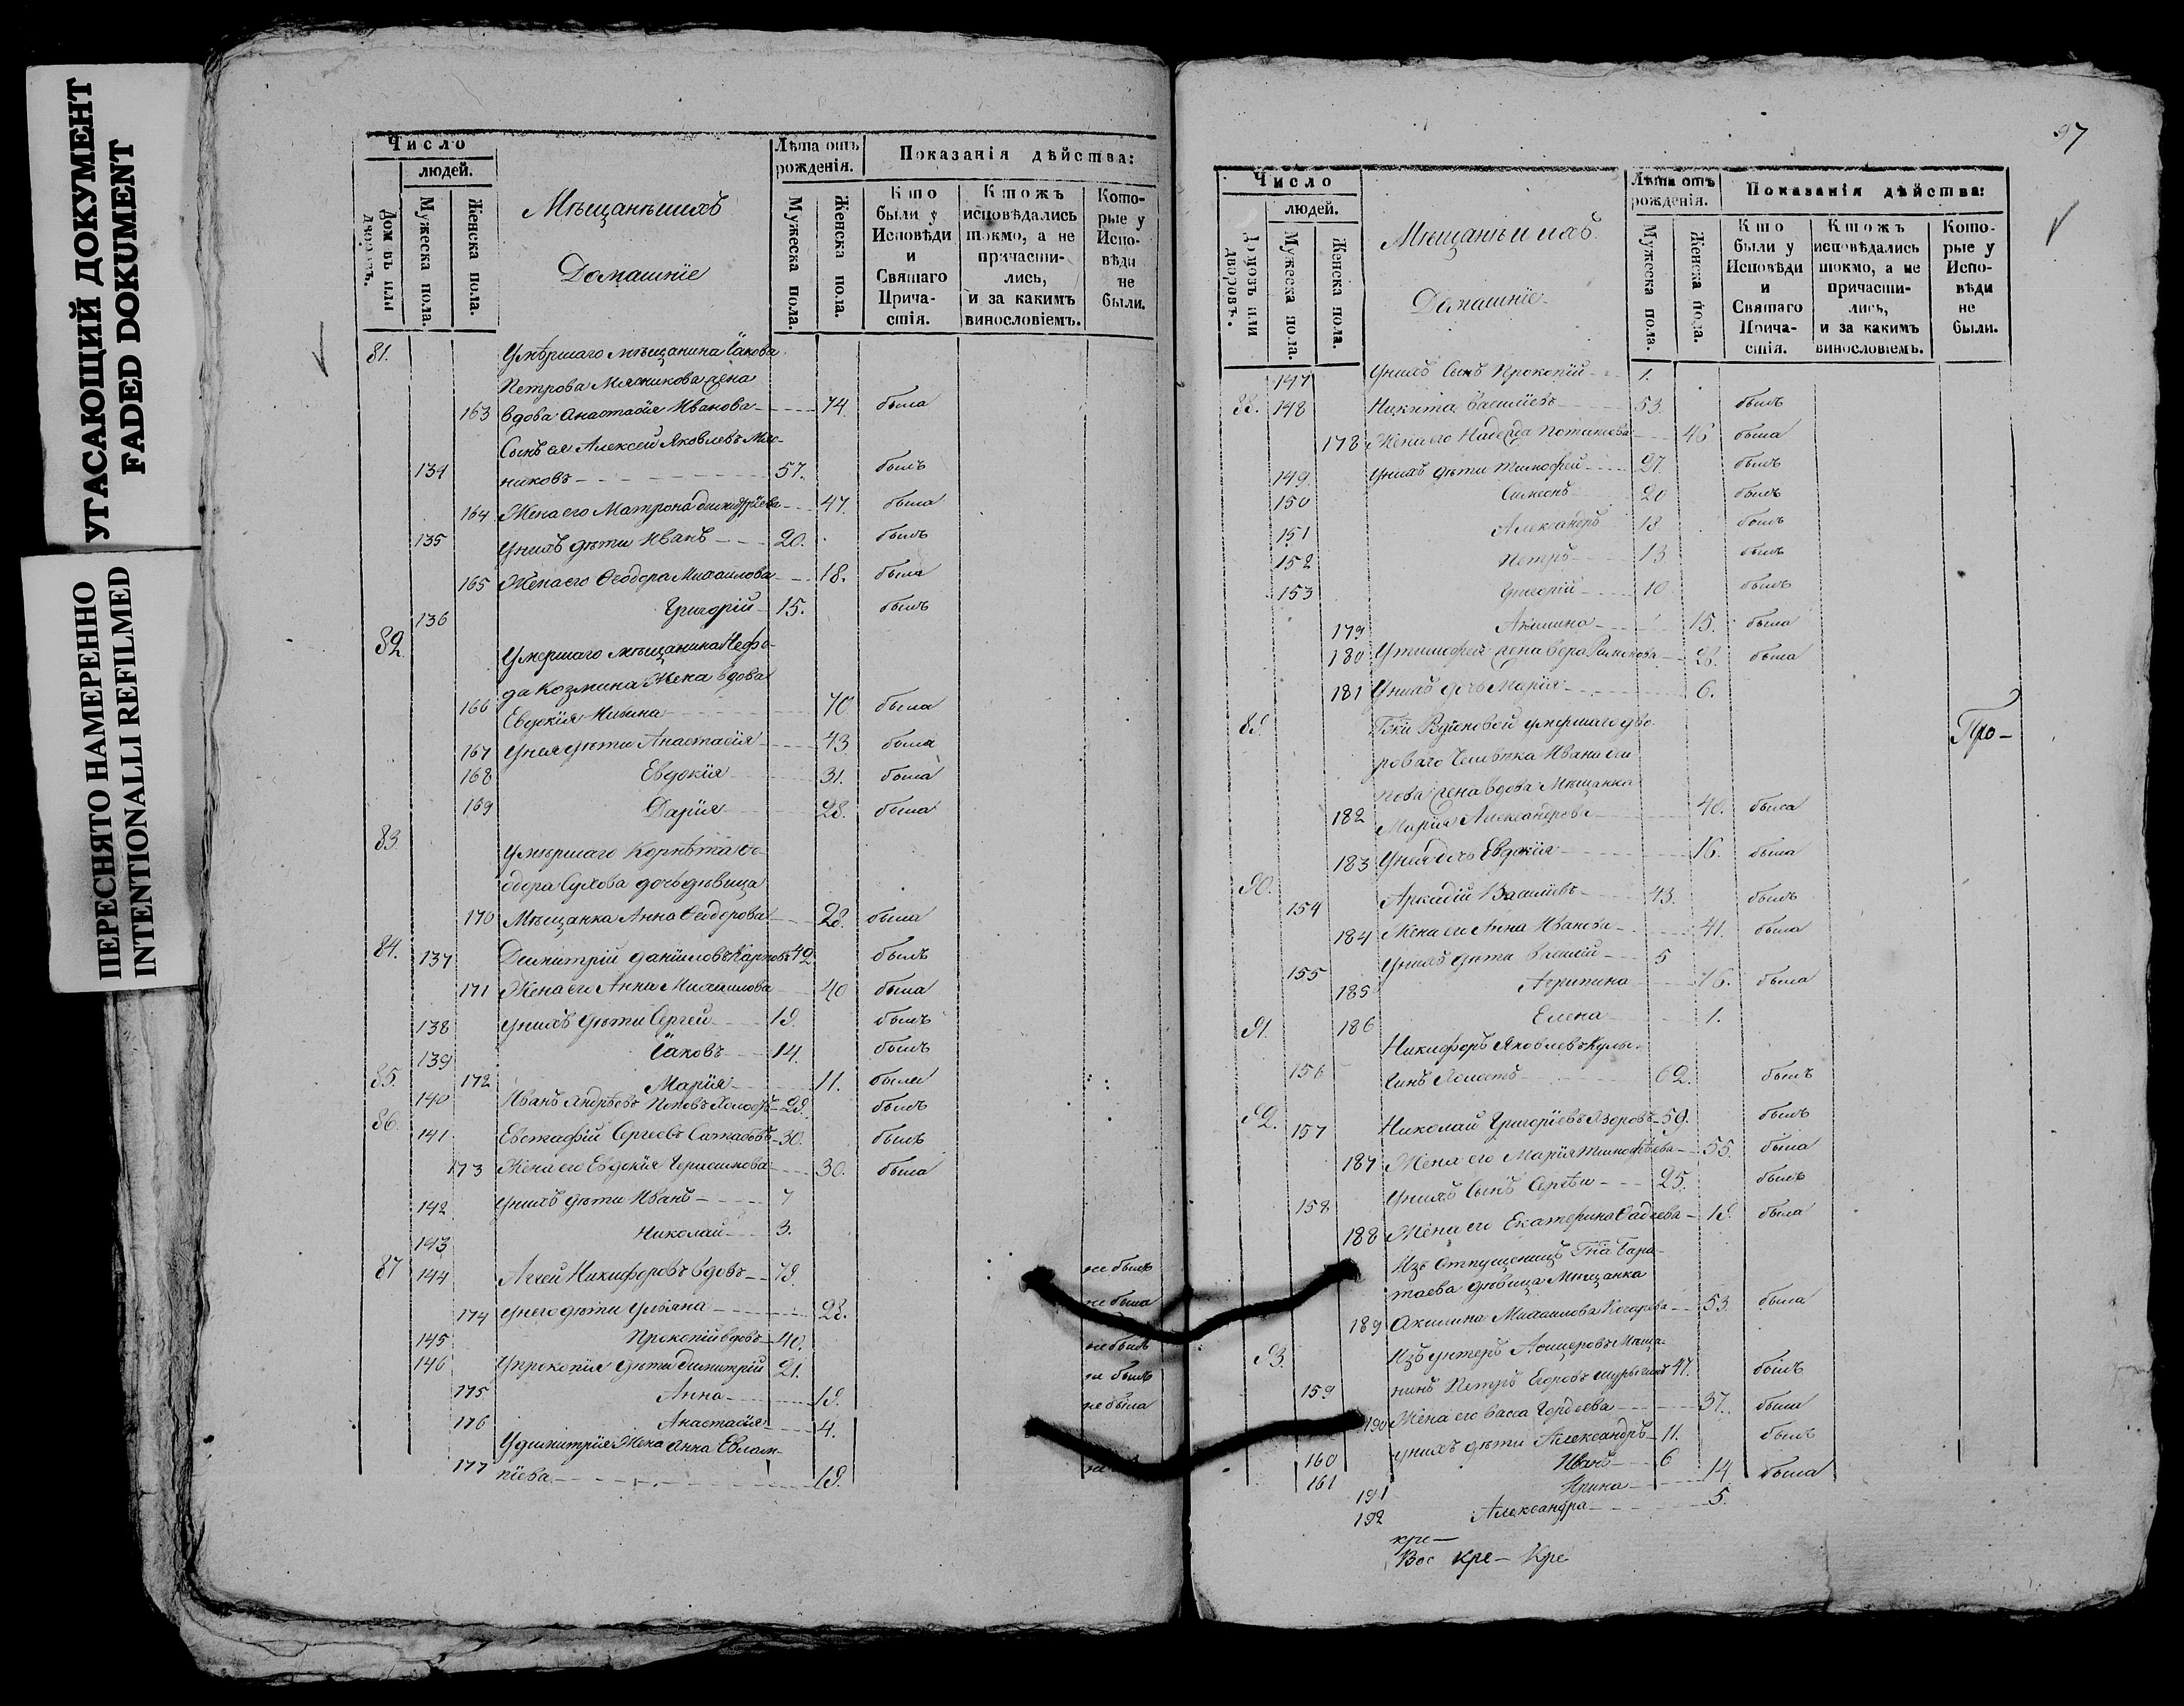 УГАСАЮЩИЙ ДОКУМЕНТ
FADED DOKUMENT
ПЕРЕСНЯТО НАМЕРЕННО
INTENTIONALLI REFILMED
Число
людей.
Домовъ или дворовъ.
Мужеска пола.
Женска пола.
Мѣщане и ихъ
Домашніе
Лѣта отъ рожденія.
Мужеска пола.
Женска пола.
Показанія дѣйства:
Кто были у Исповѣди и Святаго Прича-стія.
Ктожъ исповѣдались токмо, а не причасти-лись, и за какимъ винословіемъ.
Кото-рые у Испо-вѣди не были.
81. Умершаго мѣщанина Іакова
Петрова Мясникова жена
163 вдова Анастасія Иванова 74 была
Сынъ ея Алексей Яковлевъ Мяс-
134 никовъ 57. былъ
164 Жена его Матрона Димитріева 47. была
135 У нихъ дѣти Иванъ 20. былъ
165 Жена его Феодора Михаилова 18. была
136 Григорій 15. былъ
82. Умершаго мѣщанина Нефо-
да Козмина Жена вдова
166 Евдокія 70 была
167 У нея дѣти Анастасія 43 была
168 Евдокія 31. была
169 Дарія 28. была
83 Умершаго Ѳе-
одора Сухова дочь девица
170 Мѣщанка Анна Феодорова 28. была
84. 137 Димитрій Даниловъ Карповъ 42 былъ
171 Жена его Анна Михаилова 40 была
138 У нихъ дѣти Сергей 19. былъ
139 Іаковъ 14. былъ
172 Марія 11. была
85. 140 Иванъ Андреевъ Поповъ 29. былъ
86. 141 Евстафій Сергеевъ 30. былъ
173 Жена его Евдокія Герасимова 30. была
142 У нихъ дѣти Иванъ 7
143 Николай 3.
87 144 Аггей Никифоровъ вдовъ 79. не былъ
174 У него дѣти Уліяна 28. не была
145 Прокопій вдовъ 40. не былъ
146 У Прокопія дѣти Димитрій 21. не былъ
175 Анна 19. не была
176 Анастасія 4.
У Димитрія Жена Анна Евлам-
177 піева 19.
97
Число
людей.
Домовъ или дворовъ.
Мужеска пола.
Женска пола.
Мѣщане и ихъ
Домашніе
Лѣта отъ рожденія.
Мужеска пола.
Женска пола.
Показанія дѣйства:
Кто были у Исповѣди и Святаго Прича-стія.
Ктожъ исповѣдались токмо, а не причасти-лись, и за какимъ винословіемъ.
Кото-рые у Испо-вѣди не были.
147 У нихъ Сынъ Прокопій 1.
88. 148 Никита Василіевъ 53. былъ
178 Жена его Надежда Потапова 46 была
149 У нихъ дѣти Тимофей 27. былъ
150 Симеонъ 20 былъ
151 Александръ 18 былъ
152 Петръ 13 былъ
153 Григорій 10 былъ
179 Акилина 15. была
180 У Тимофея жена Вера 28. была
181 У нихъ дочь Марія 6.
89. умершаго дво-
Про-
роваго Человѣка Ивана
жена вдова Мѣщанка
182 Марія Александрова 40. была
183 У нея дочь Евдокія 16. была
90. 154 Аркадій Василіевъ 43. былъ
184 Жена его Анна Иванова 41. была
155 У нихъ дѣти Василій 5
185 Агрипина 16. была
186 Елена 1.
91. Никифоръ Яковлевъ
156 62. былъ
92. 157 Николай Григоріевъ 59. былъ
187 Жена его Марія Тимофѣева 55. была
158 У нихъ Сынъ Сергѣй 25. былъ
188 Жена его Екатерина Фадеева 19. была
Изъ отпущенницъ
таева девица Мѣщанка
189 Акилина Михаилова 53. была
93. Изъ унтеръ Мѣща-
159 нинъ Петръ Егоровъ 47. былъ
190 Жена его Васса Гордеева 37. была
160 У нихъ дѣти Александръ 11. былъ
161 Иванъ 6
191 Ирина 14 была
192 Александра 5.
кре—
Вос кре— Кре